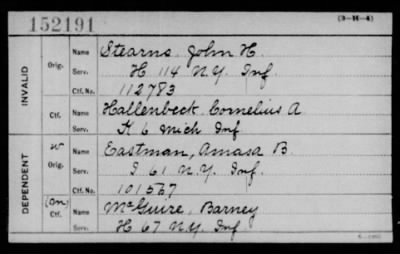 152191
(3-H-4)
INVALID
Orig.
Name Stearns, John H.
Serv. H 114 N.Y. Inf.
Ctf. No. 112783
Ctf.
Name Hallenbeck, Cornelius A
Serv. K 6 Mich Inf
DEPENDENT
W
Orig.
Name Eastman, Amasa B
Serv. I 61 N.Y. Inf.
Ctf. No. 101567
(m)
Ctf.
Name McGuire, Barney
Serv. H 67 N.Y. Inf